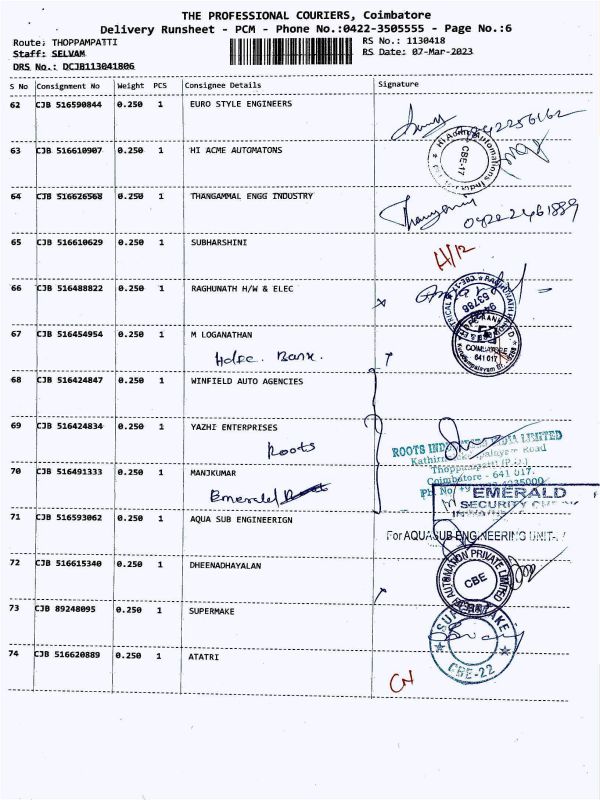 THE PROFESSIONAL COURIERS, Coimbatore
Delivery Runsheet - PCM - Phone No.:0422-3505555 - Page No.:6
Route: THOPPAMPATTI RS No.: 1130418
Staff: SELVAM RS Date: 07-Mar-2023
DRS No.: DCJB113041806
S No Consignment No Weight PCS Consignee Details Signature
62 CJB 516590844 0.250 1 EURO STYLE ENGINEERS
63 CJB 516610907 0.250 1 HI ACME AUTOMATONS
CBE-17
64 CJB 516626568 0.250 1 THANGAMMAL ENGG INDUSTRY
65 CJB 516610629 0.250 1 SUBHARSHINI
66 CJB 516488822 0.250 1 RAGHUNATH H/W & ELEC
67 CJB 516454954 0.250 1 M LOGANATHAN
Hdfc. Bank.
COIMBATORE
641 017
68 CJB 516424847 0.250 1 WINFIELD AUTO AGENCIES
69 CJB 516424834 0.250 1 YAZHI ENTERPRISES
Roots
ROOTS INDUSTRIES INDIA LIMITED
Road
Thoppampatti (P.O.)
Coimbatore - 641 017.
70 CJB 516491333 0.250 1 MANJKUMAR
Emerald
EMERALD
SECURITY
71 CJB 516593062 0.250 1 AQUA SUB ENGINEERIGN
For AQUASUB ENGINEERING UNIT-
72 CJB 516615340 0.250 1 DHEENADHAYALAN
AUTOMATION PRIVATE LIMITED
CBE
73 CJB 89248095 0.250 1 SUPERMAKE
CBE-22
74 CJB 516620889 0.250 1 ATATRI